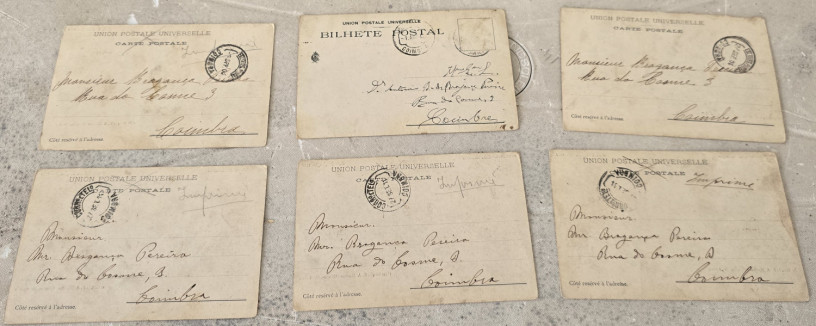 UNION POSTALE UNIVERSELLE
CARTE POSTALE
COIMBRA
Monsieur Bragança Pereira
Rua do Cosme 3
Coimbra
Côté réservé à l'adresse.
UNION POSTALE UNIVERSELLE
BILHETE POSTAL
Rua do Cosme, 3
Coimbra
UNION POSTALE UNIVERSELLE
CARTE POSTALE
Monsieur Bragança Pereira
Rua do Cosme 3
Coimbra
Côté réservé à l'adresse.
UNION POSTALE UNIVERSELLE
CARTE POSTALE
Imprimé
COIMBRA
Monsieur
Mr. Bragança Pereira
Rua do Cosme, 3
Coimbra
Côté réservé à l'adresse.
UNION POSTALE UNIVERSELLE
POSTALE
Imprimé
COIMBRA
Monsieur.
Mr. Bragança Pereira
Rua do Cosme, 3.
Coimbra
Côté réservé à l'adresse.
UNION POSTALE UNIVERSELLE
POSTALE
Imprimé
COIMBRA
Monsieur.
Mr Bragança Pereira
Rua do Cosme, 3
Coimbra
Côté réservé à l'adresse.